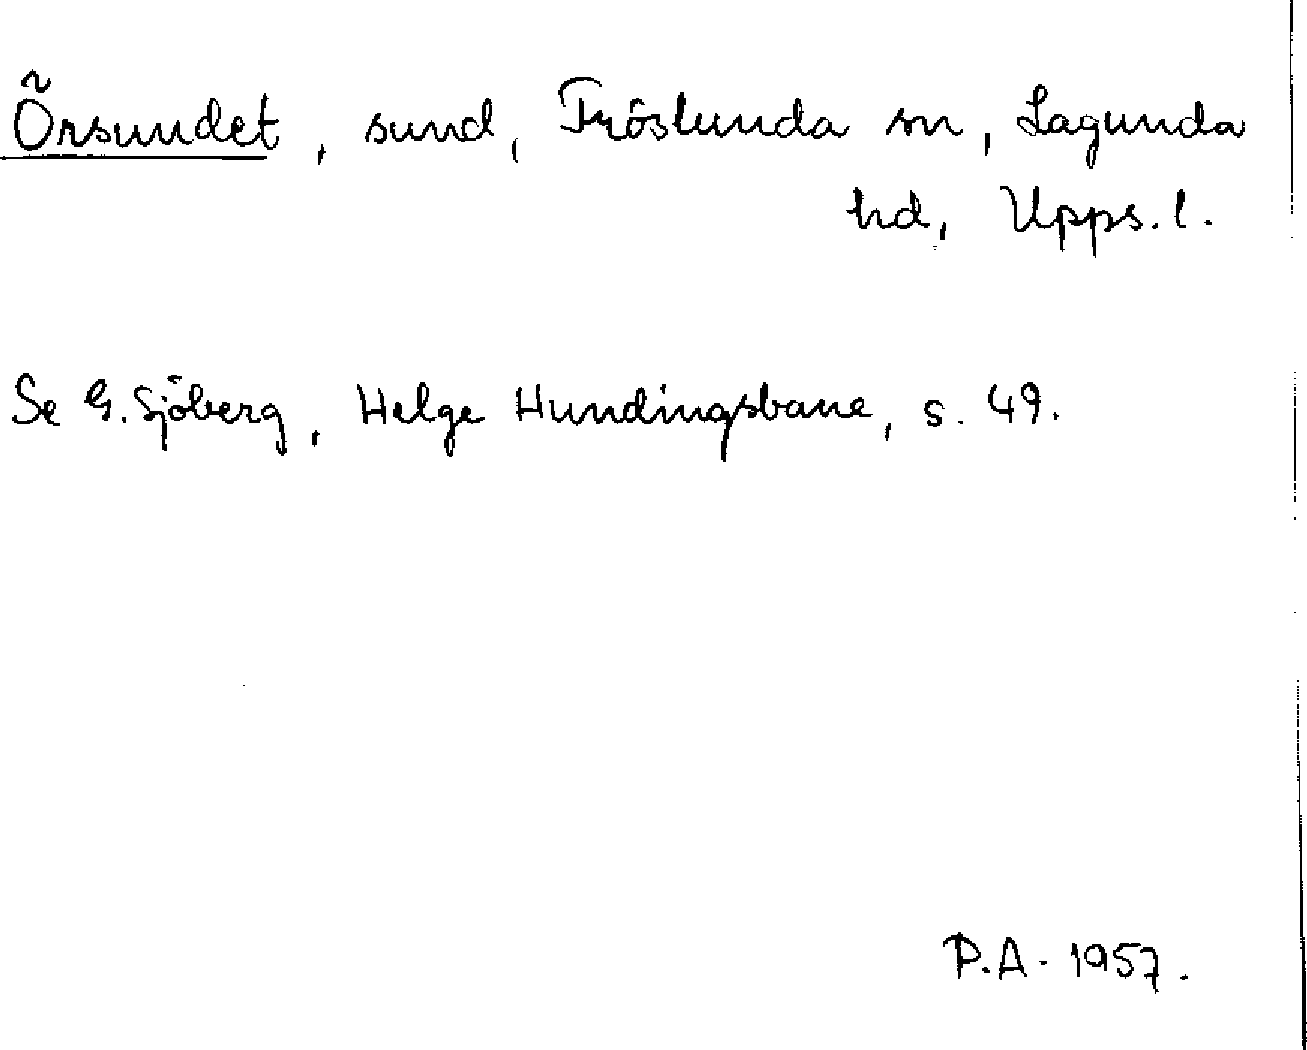 Örsundet, sund, Fröslunda sn, Lagunda
hd, Upps. l.
Se G. Sjöberg, Helge Hundingsbane, s. 49.
P.A. 1957.